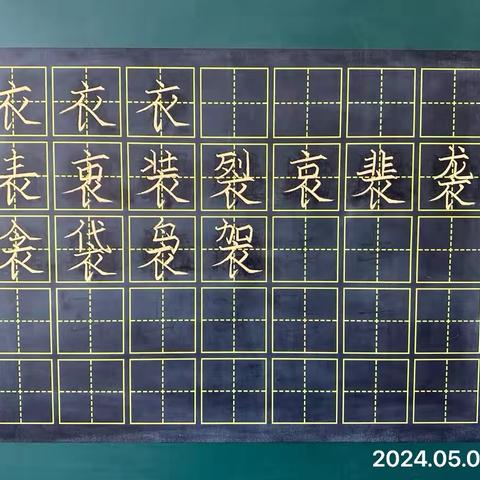 衣衣衣
表衷装裂哀裴袭
衾袋袅袈
2024.05.0